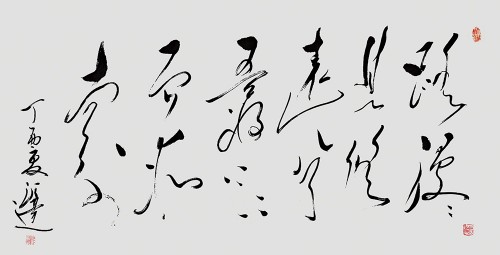 路漫〻
其修
遠兮
吾將上下
而求
索
丁酉夏